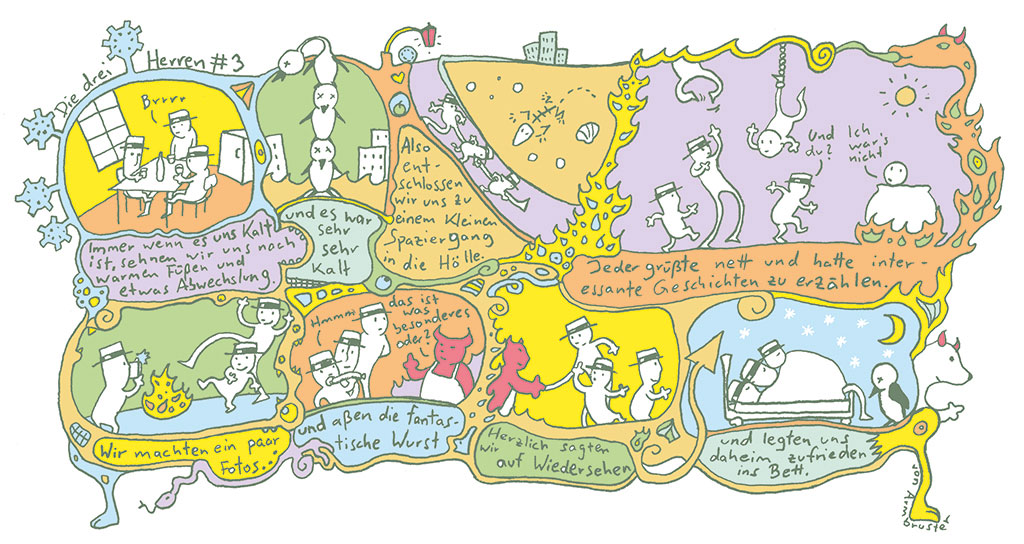 Die drei Herren #3
Brrrr
Immer wenn es uns kalt
ist, sehnen wir uns nach
warmen Füßen und
etwas Abwechslung.
und es war
sehr
sehr
kalt
Also
ent-
schlossen
wir uns zu
einem kleinen
Spaziergang
in die Hölle.
Und
du?
Ich
war's
nicht
Jeder grüßte nett und hatte inter-
essante Geschichten zu erzählen.
Wir machten ein paar
Fotos.
Hmmm
das ist
was
besonderes
oder?
und aßen die fantas-
tische Wurst
Herzlich sagten
wir
auf Wiedersehen
und legten uns
daheim zufrieden
ins Bett.
von Armbruster